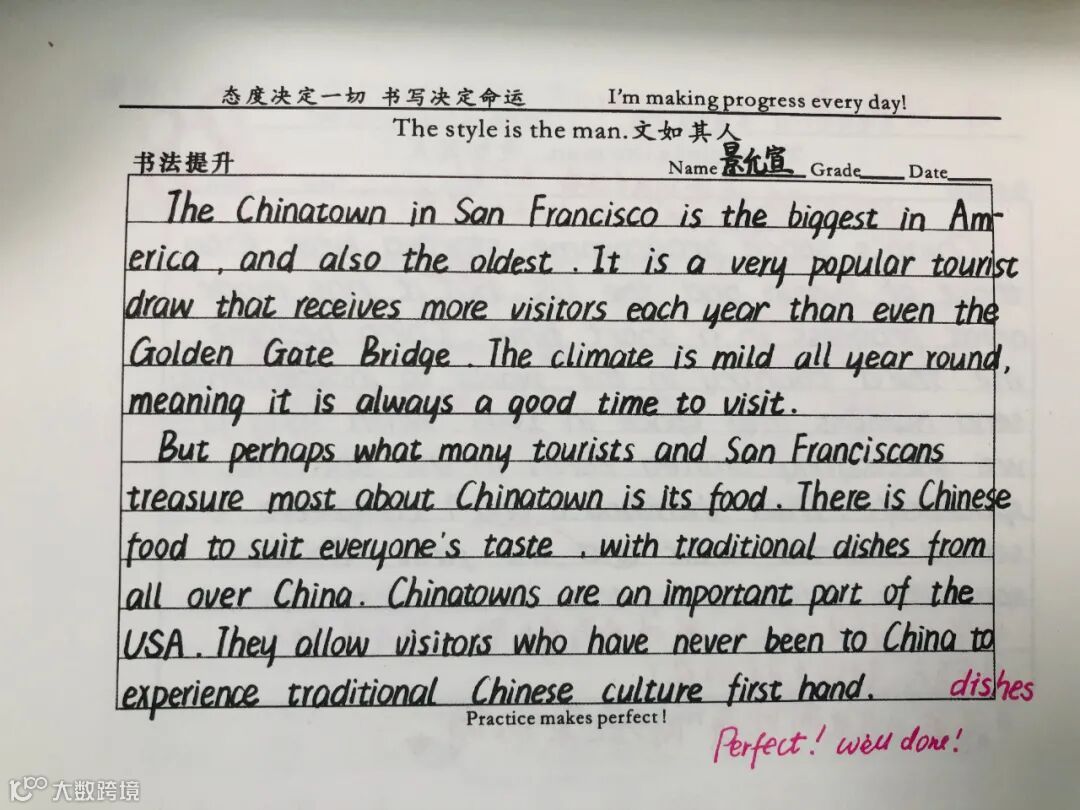 态度决定一切 书写决定命运 I'm making progress every day!
The style is the man.文如其人
书法提升 Name 景允宣 Grade Date
The Chinatown in San Francisco is the biggest in Am-
erica, and also the oldest. It is a very popular tourist
draw that receives more visitors each year than even the
Golden Gate Bridge. The climate is mild all year round,
meaning it is always a good time to visit.
But perhaps what many tourists and San Franciscans
treasure most about Chinatown is its food. There is Chinese
food to suit everyone's taste, with traditional dishes from
all over China. Chinatowns are an important part of the
USA. They allow visitors who have never been to China to
experience traditional Chinese culture first hand. dishes
Practice makes perfect!
Perfect! well done!
大数跨境